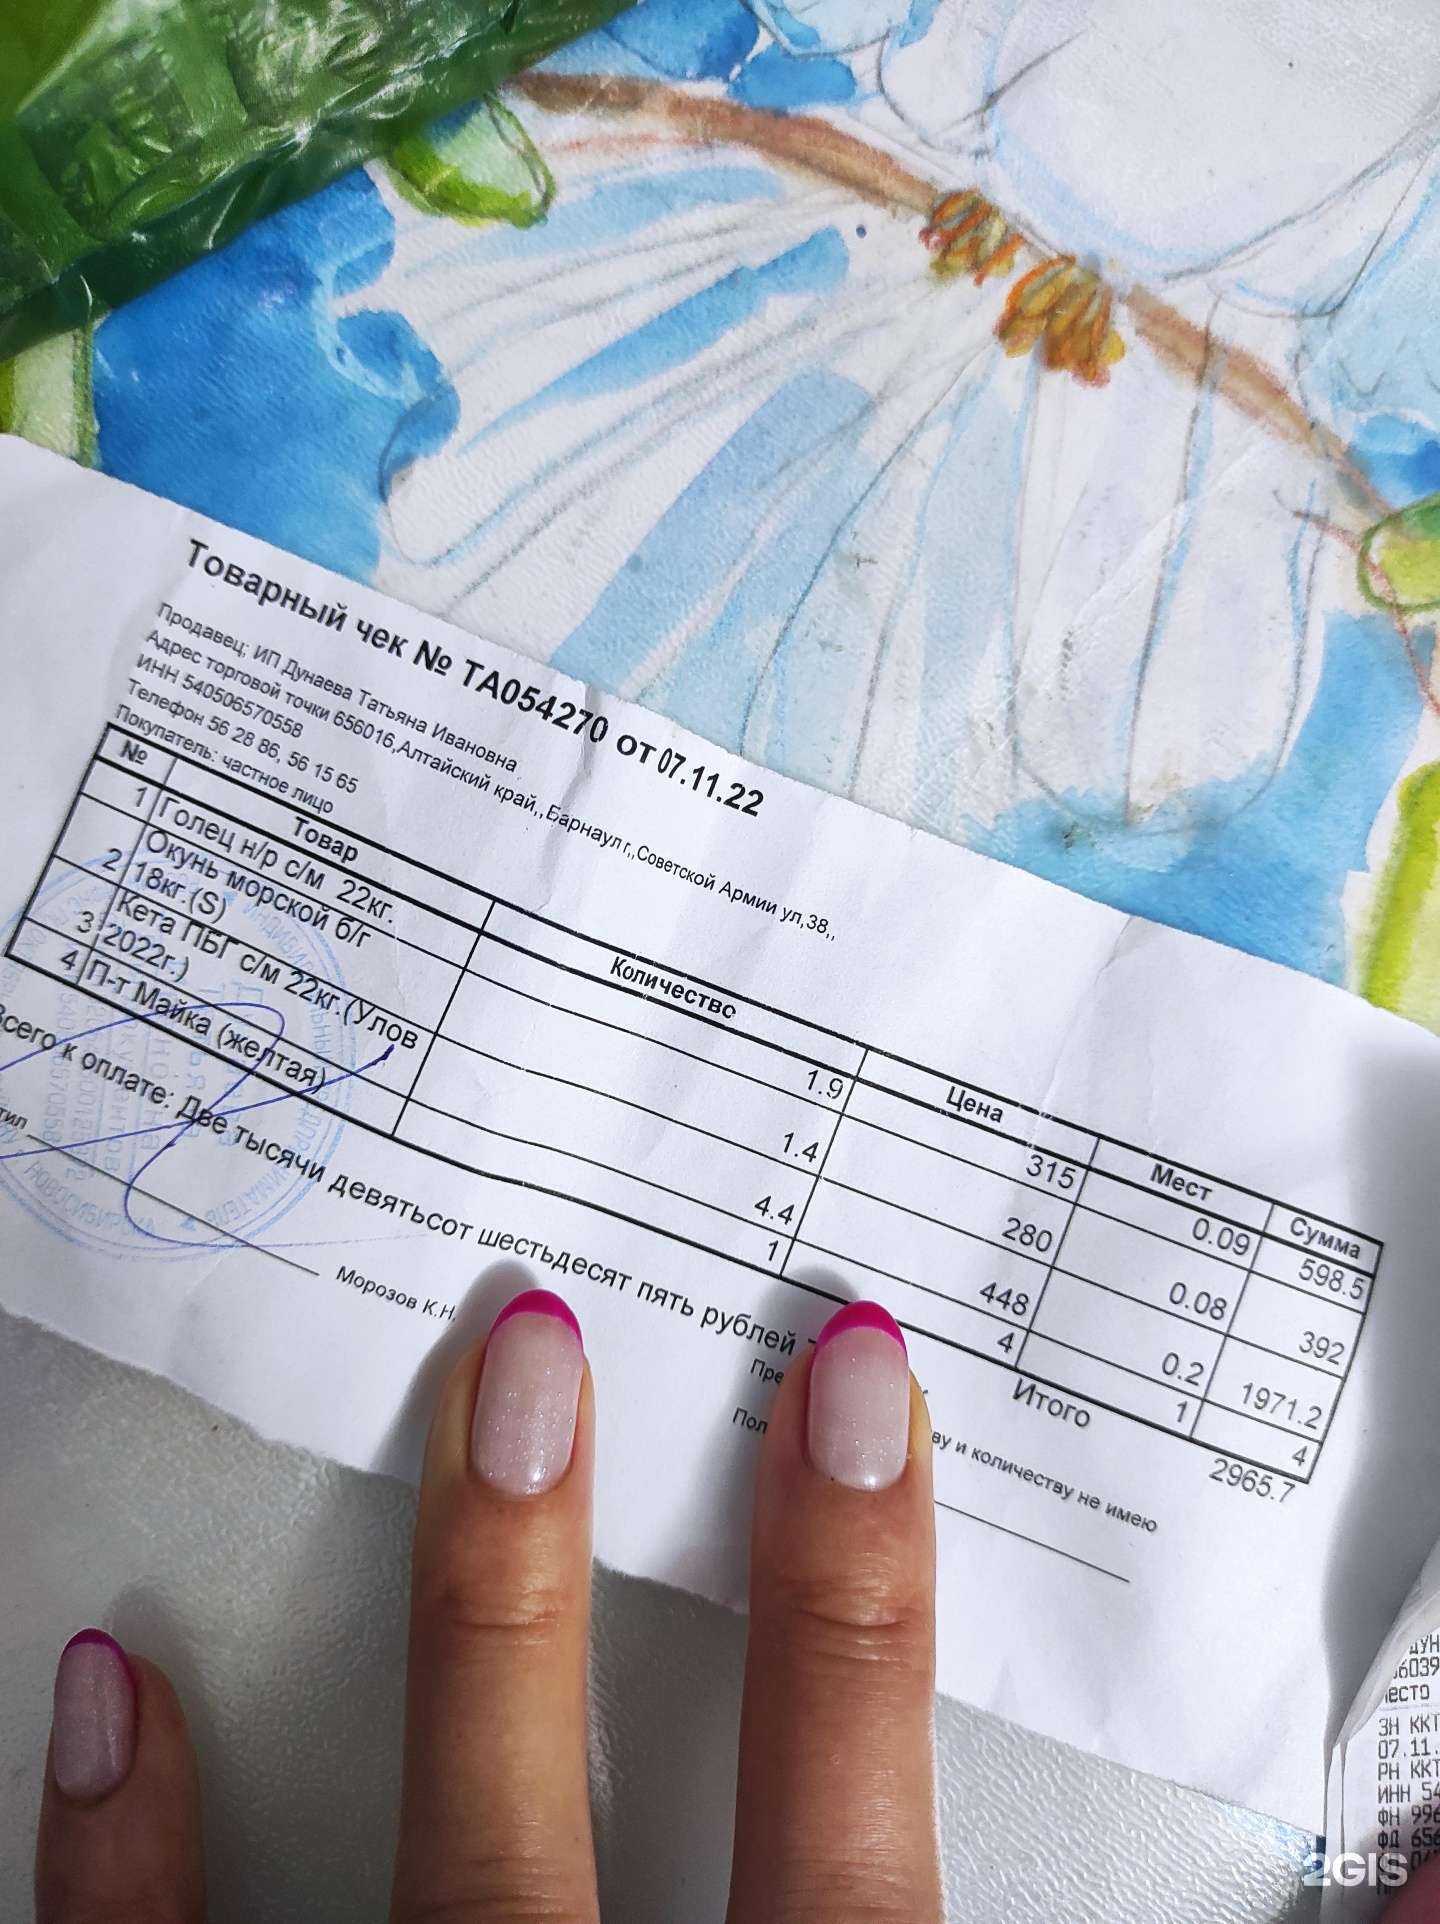 Товарный чек № ТА054270 от 07.11.22
Продавец; ИП Дунаева Татьяна Ивановна
Адрес торговой точки 656016,Алтайский край,,Барнаул г,,Советской Армии ул,38,,
ИНН 540506570558
Телефон 56 28 86, 56 15 65
Покупатель: частное лицо
№ Товар Количество Цена Мест Сумма
1 Голец н/р с/м 22кг. 1.9 315 0.09 598.5
2 Окунь морской б/г 18кг.(S) 1.4 280 0.08 392
3 Кета ПБГ с/м 22кг.(Улов 2022г.) 4.4 448 0.2 1971.2
4 П-т Майка (желтая) 1 4 1 4
Итого 2965.7
Всего к оплате: Две тысячи девятьсот шестьдесят пять рублей
Морозов К.Н.
и количеству не имею
ЗН ККТ
07.11.
РН ККТ
ИНН 54
ФН 996
ФД 656
2GIS